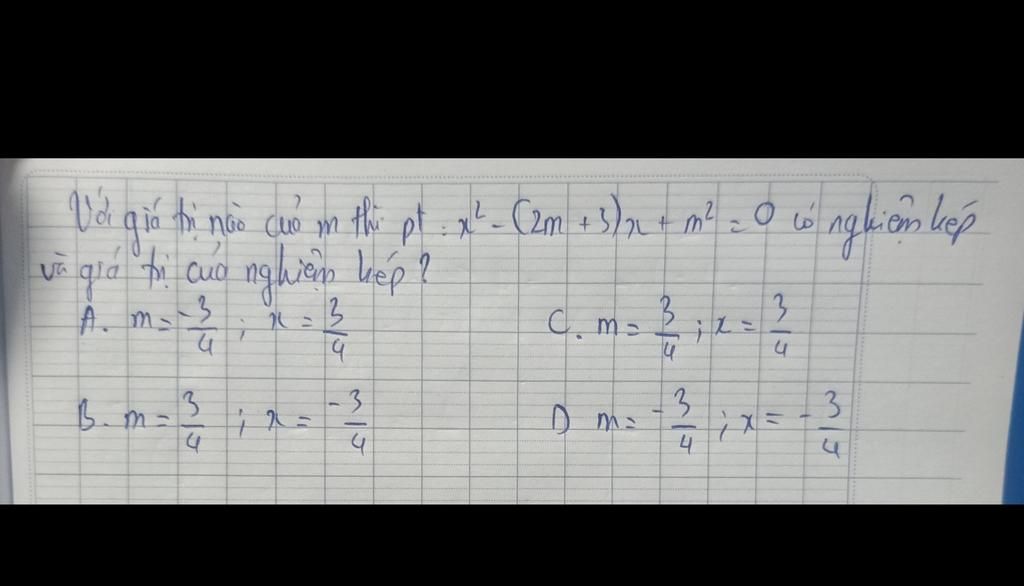 Với giá trị nào của m thì pt : x² - (2m + 3)x + m² = 0 có nghiệm kép
và giá trị của nghiệm kép ?
A. m = -3/4 ; x = 3/4 C. m = 3/4 ; x = 3/4
B. m = 3/4 ; x = -3/4 D m = -3/4 ; x = -3/4